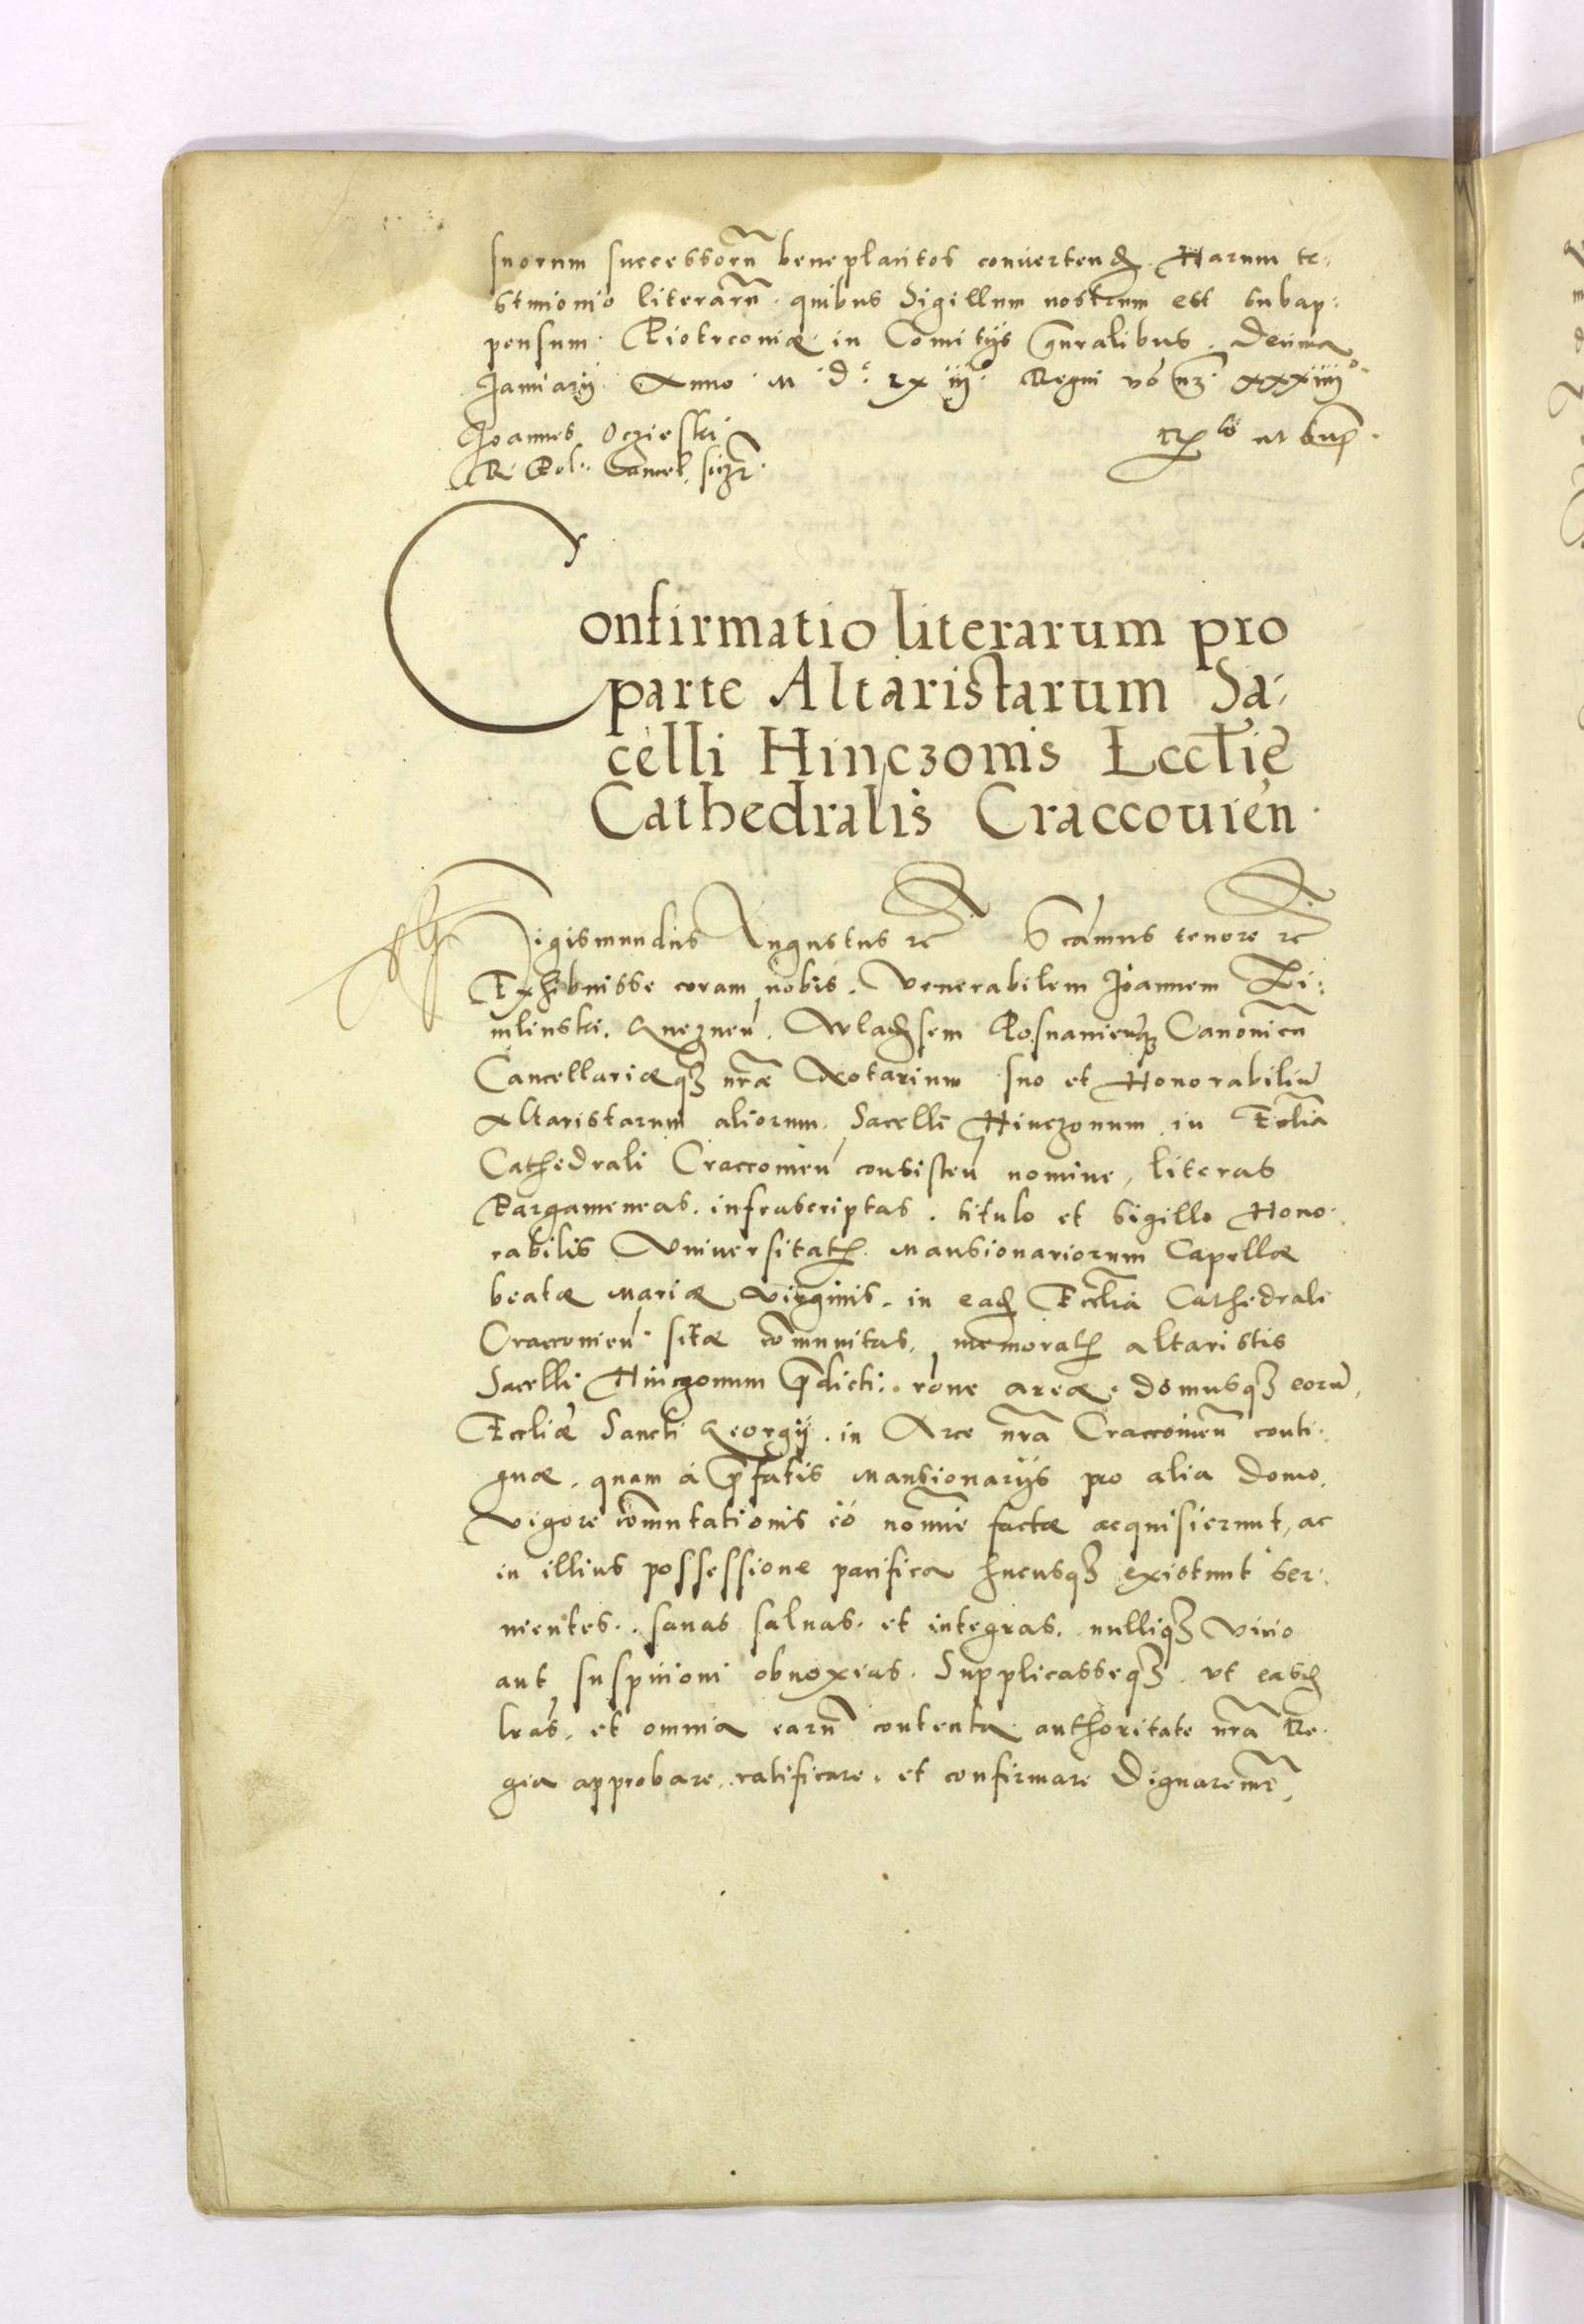 suorum successorũ beneplacitos conuertend. Harum te:
stimonio literarũ. quibus Sigillum nostrum est subap:
pensum. Piotrconiæ in Comitijs gñralibus. Decima
Januarij. Anno M. d. Lx iij. Regni vó nri xxxiiij
Joannes Oczieski
R. Pol. Cancel.
Relo ut supr.
Confirmatio literarum pro
parte Altaristarum Sa:
celli Hinczonis Eccliẽ
Cathedralis Craccouień.
Sigismundus Augustus etc. Sċamus tenore etc.
Exhibuisse coram nobis. Venerabilem Joannem
mlinski. Gneznen. Wladislaỹsem Posnanienq Canonicũ
Cancellariæq nrãe Notarium suo et Honorabiliũ
Altaristarum aliorum. Sacelli Hinczonum in Ecclia
Cathedrali Craccouień consisteń nomine, literas
Pargameneas. infrascriptas. titulo et sigillo Hono.
rabilis Vniuersitat. Mansionariorum Capellæ
beatæ Mariæ Virginis. in ead Ecclia Cathedrali
Craccouień. sitæ cõmunitas, memorat altaristis
Sacelli Hinczonum pdicti. rõne areæ. domusq eorũ,
Eccliæ Sancti Georgij. in Arce nrã Craccouień conti.
guæ. quam à pfatis Mansionarijs pro alia domo.
vigore cõmutationis eó nomine factæ acquisierunt, ac
in illius possessione pacifica hucusq existunt ser.
uientes. sanas saluas. et integras. nulliq vicio
aut suspicioni obnoxias. Supplicasseq. vt easd
lrãs. et omnia earũ contenta authoritate nrã Re.
gia approbare. ratificare. et confirmare Dignaremr,